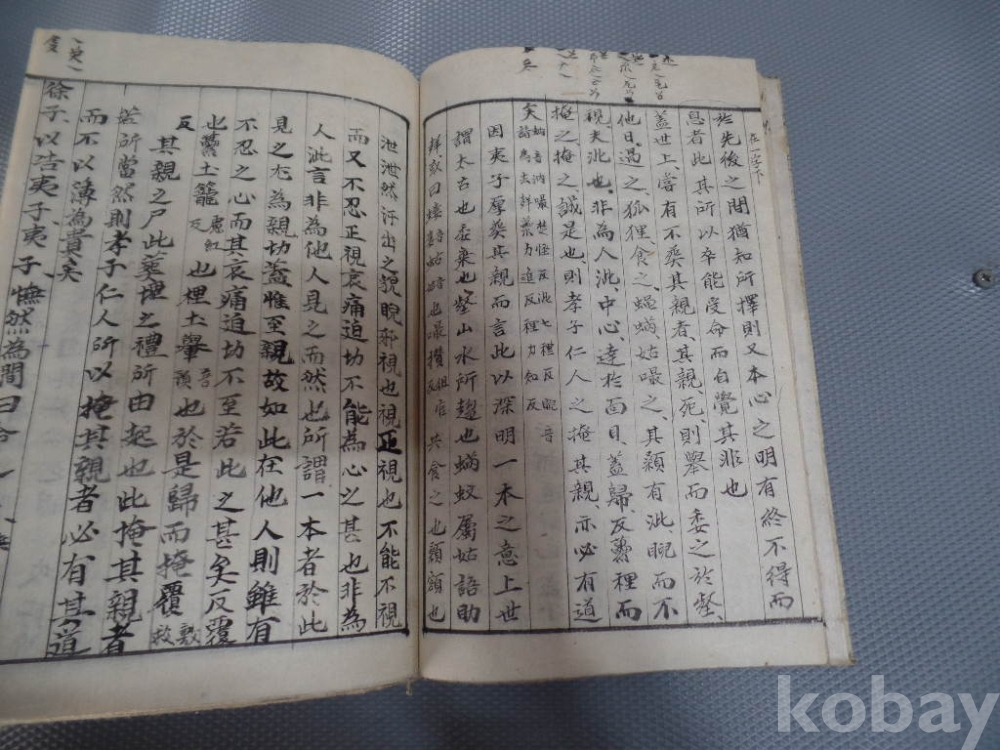 在一字下
於先後之間猶知所擇則又本心之明有終不得而
息者此其所以卒能受命而自覺其非也
蓋世上嘗有不葬其親者其親死則舉而委之於壑
他日過之狐狸食之蝸姑嘬之其顙有泚睨而不
視夫泚也非為人泚中心達於面目蓋歸反虆裡而
掩之掩之誠是也則孝子仁人之掩其親亦必有道
矣
因夷子厚葬其親而言此以深明一本之意上世
謂太古也委棄也壑山水所趨也蝸蚊屬姑語助
聲或曰螻蛄也嘬攢共食之也顙額也
泚泚然汗出之貌睨邪視也視正視也不能不視
而又不忍正視哀痛迫切不能為心之甚也非為
人泚言非為他人見之而然也所謂一本者於此
見之尤為親切蓋惟至親故如此在他人則雖有
不忍之心而其哀痛迫切不至若此之甚矣反覆
也虆土籠也埋土轝也於是歸而掩覆
其親之尸此葬埋之禮所由起也此掩其親者
若所當然則孝子仁人所以掩其親者必有其道
而不以薄為貴矣
徐子以告夷子夷子憮然為間曰